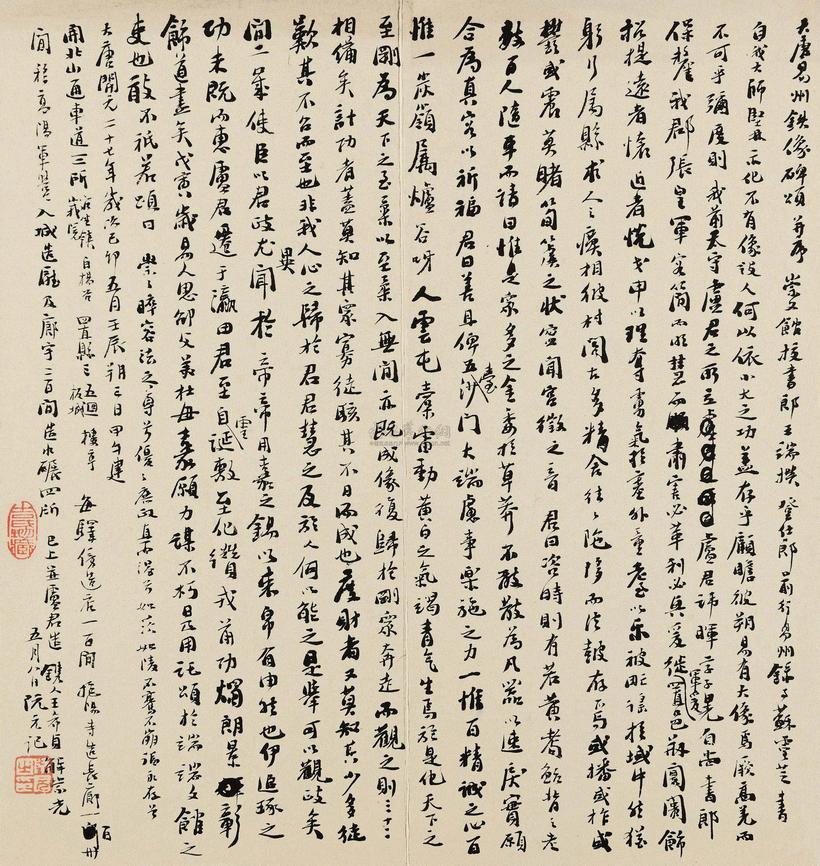 大唐易州鉄像碑頌并序 崇文館校書郎王端撰 登仕郎前行易州録事蘇靈芝書
自我大師堅固示化不有像設人何以依小大之功盖存乎顧瞻彼朔易有大像焉厥高克而
不可乎彌度則我前太守盧君之所立盧君諱暉字子晃自尚書郎
保釐我郡張皇軍容簡而明慧而肅害必革利必興爰徙置邑郛閭闠飾
松提遠者懷迩者悦戎甲以理奪勇氣於塞外童耄以樂被
躬行屬縣求人之瘼相彼村閭古多精舍往陁隊而法鼓存焉或播或作或
欝或震莫睹筍簴之状空聞宫徵之音君曰咨時則有若黄耇鮐背之老
数百人隨車而請曰惟是衆多之金委於草莽不敢散為凡器以速戾實願
合為真容以祈福君曰善且俾五臺沙門大端慮事樂施之力一惟百精誠之心百
惟一炭嶺属爐谷呀人雲屯橐雷動黄白之氣竭青气生焉於是化天下之
至剛為天下之至柔以至柔入無間亦既成像復歸於剛衆奔走而觀之則三十二
相備矣計功者蓋莫知其衆寡徒駭其不日而成也産財者又莫知其少多徒
歎其不召而至也非我人心之歸於君君慧之及於人何以能之是舉可以觀政矣
間一歲使臣以君政尤異聞於帝帝用嘉之錫以束帛有由然也伊追琢之
功未既而惠盧君遷于瀛田君至自延敷至化纉戎前功燭朗景彰
飾道盡矣戊寅歲易人思邵父美杜母嘉願力謀不朽日及用託頌於端端文館之
吏也敢不祇若頌曰 崇崇睟容法之尊兮優優庶政具不混兮如淡如陵不騫不崩福永存兮
大唐開元二十七年歲次己卯五月壬辰朔三日甲午建
開北山通車道三所 自楊谷 置縣三 五迴 樓亭 板城 每驛傍造店一百間 造長廊一百
間 移高陽軍營入城造廳及廊宇二百間 造水碾四所 已上並盧君造 鐫人王希貞 解崇光
五月八日阮元記